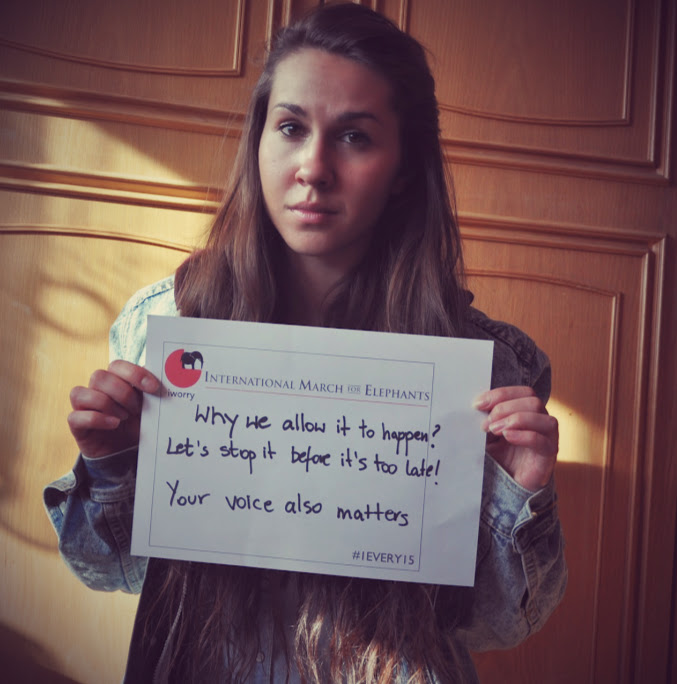 iworry
INTERNATIONAL MARCH FOR ELEPHANTS
Why we allow it to happen?
Let's stop it before it's too late!
Your voice also matters
#1EVERY15